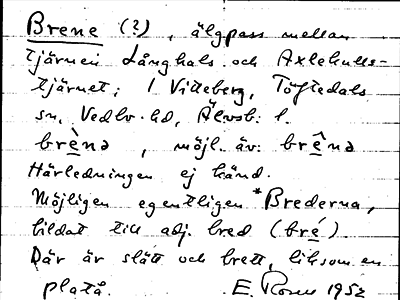 Brene (?), älgpass mellan
tjärnen Långhals och Axlehults-
tjärnet; i Vitteberg, Töftedals
sn, Vedbo hd, Älvsb. l.
brè̱nə, möjl. äv. brê̱nə
Härledningen ej känd.
Möjligen egentligen *Brederna,
bildat till adj. bred (bré̱).
Där är slätt och brett, liksom en
platå. E. 1952